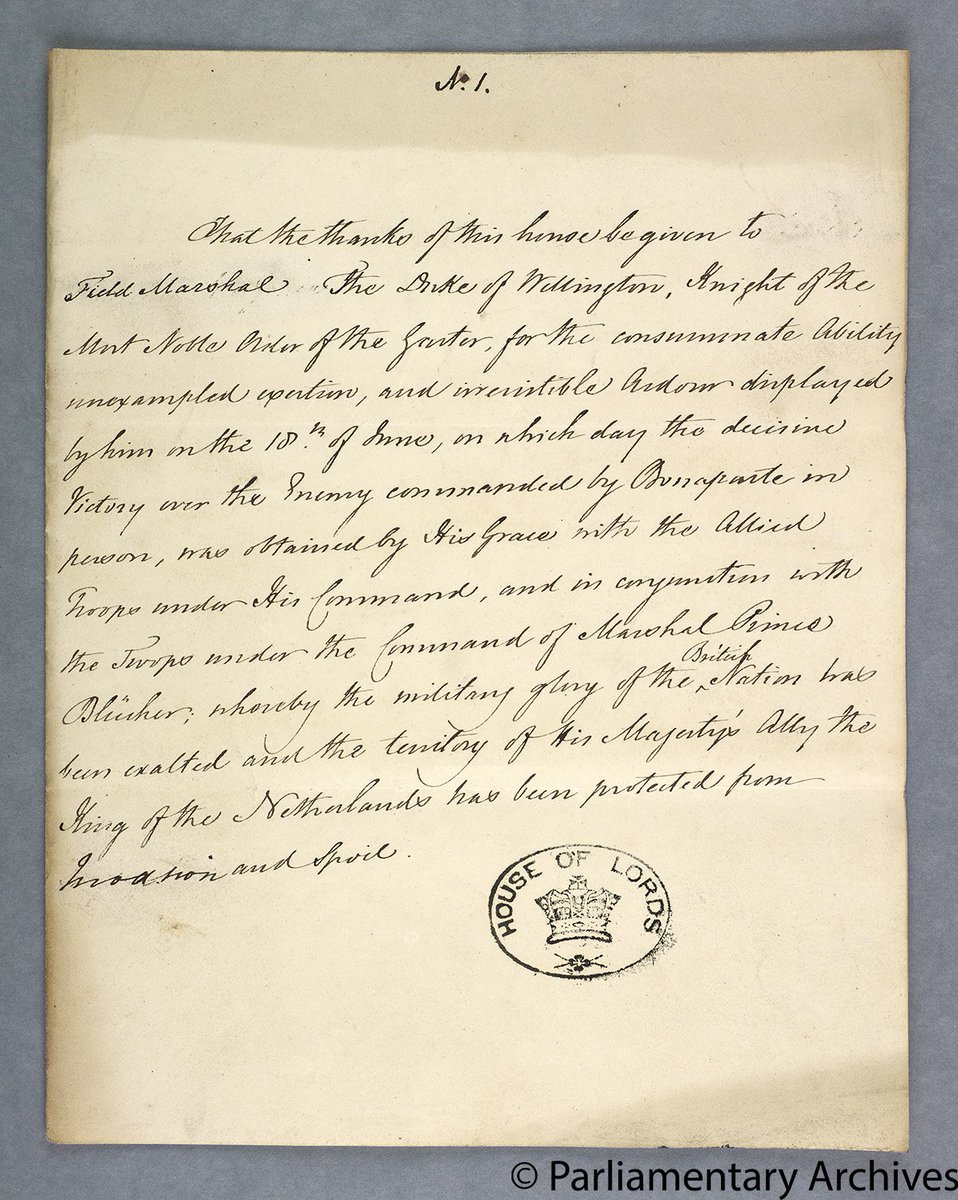 No. 1.
That the thanks of this house be given to
Field Marshal The Duke of Wellington, Knight of the
Most Noble Order of the Garter, for the consummate Ability
unexampled exertion, and irresistible Ardour displayed
by him on the 18.th of June, on which day the decisive
Victory over the Enemy commanded by Bonaparte in
person, was obtained by His Grace with the Allied
Troops under His Command, and in conjunction with
the Troops under the Command of Marshal Prince
Blücher; whereby the military glory of the ^British Nation has
been exalted and the territory of His Majesty's Ally the
King of the Netherlands has been protected from
Invasion and Spoil.
HOUSE OF LORDS
© Parliamentary Archives